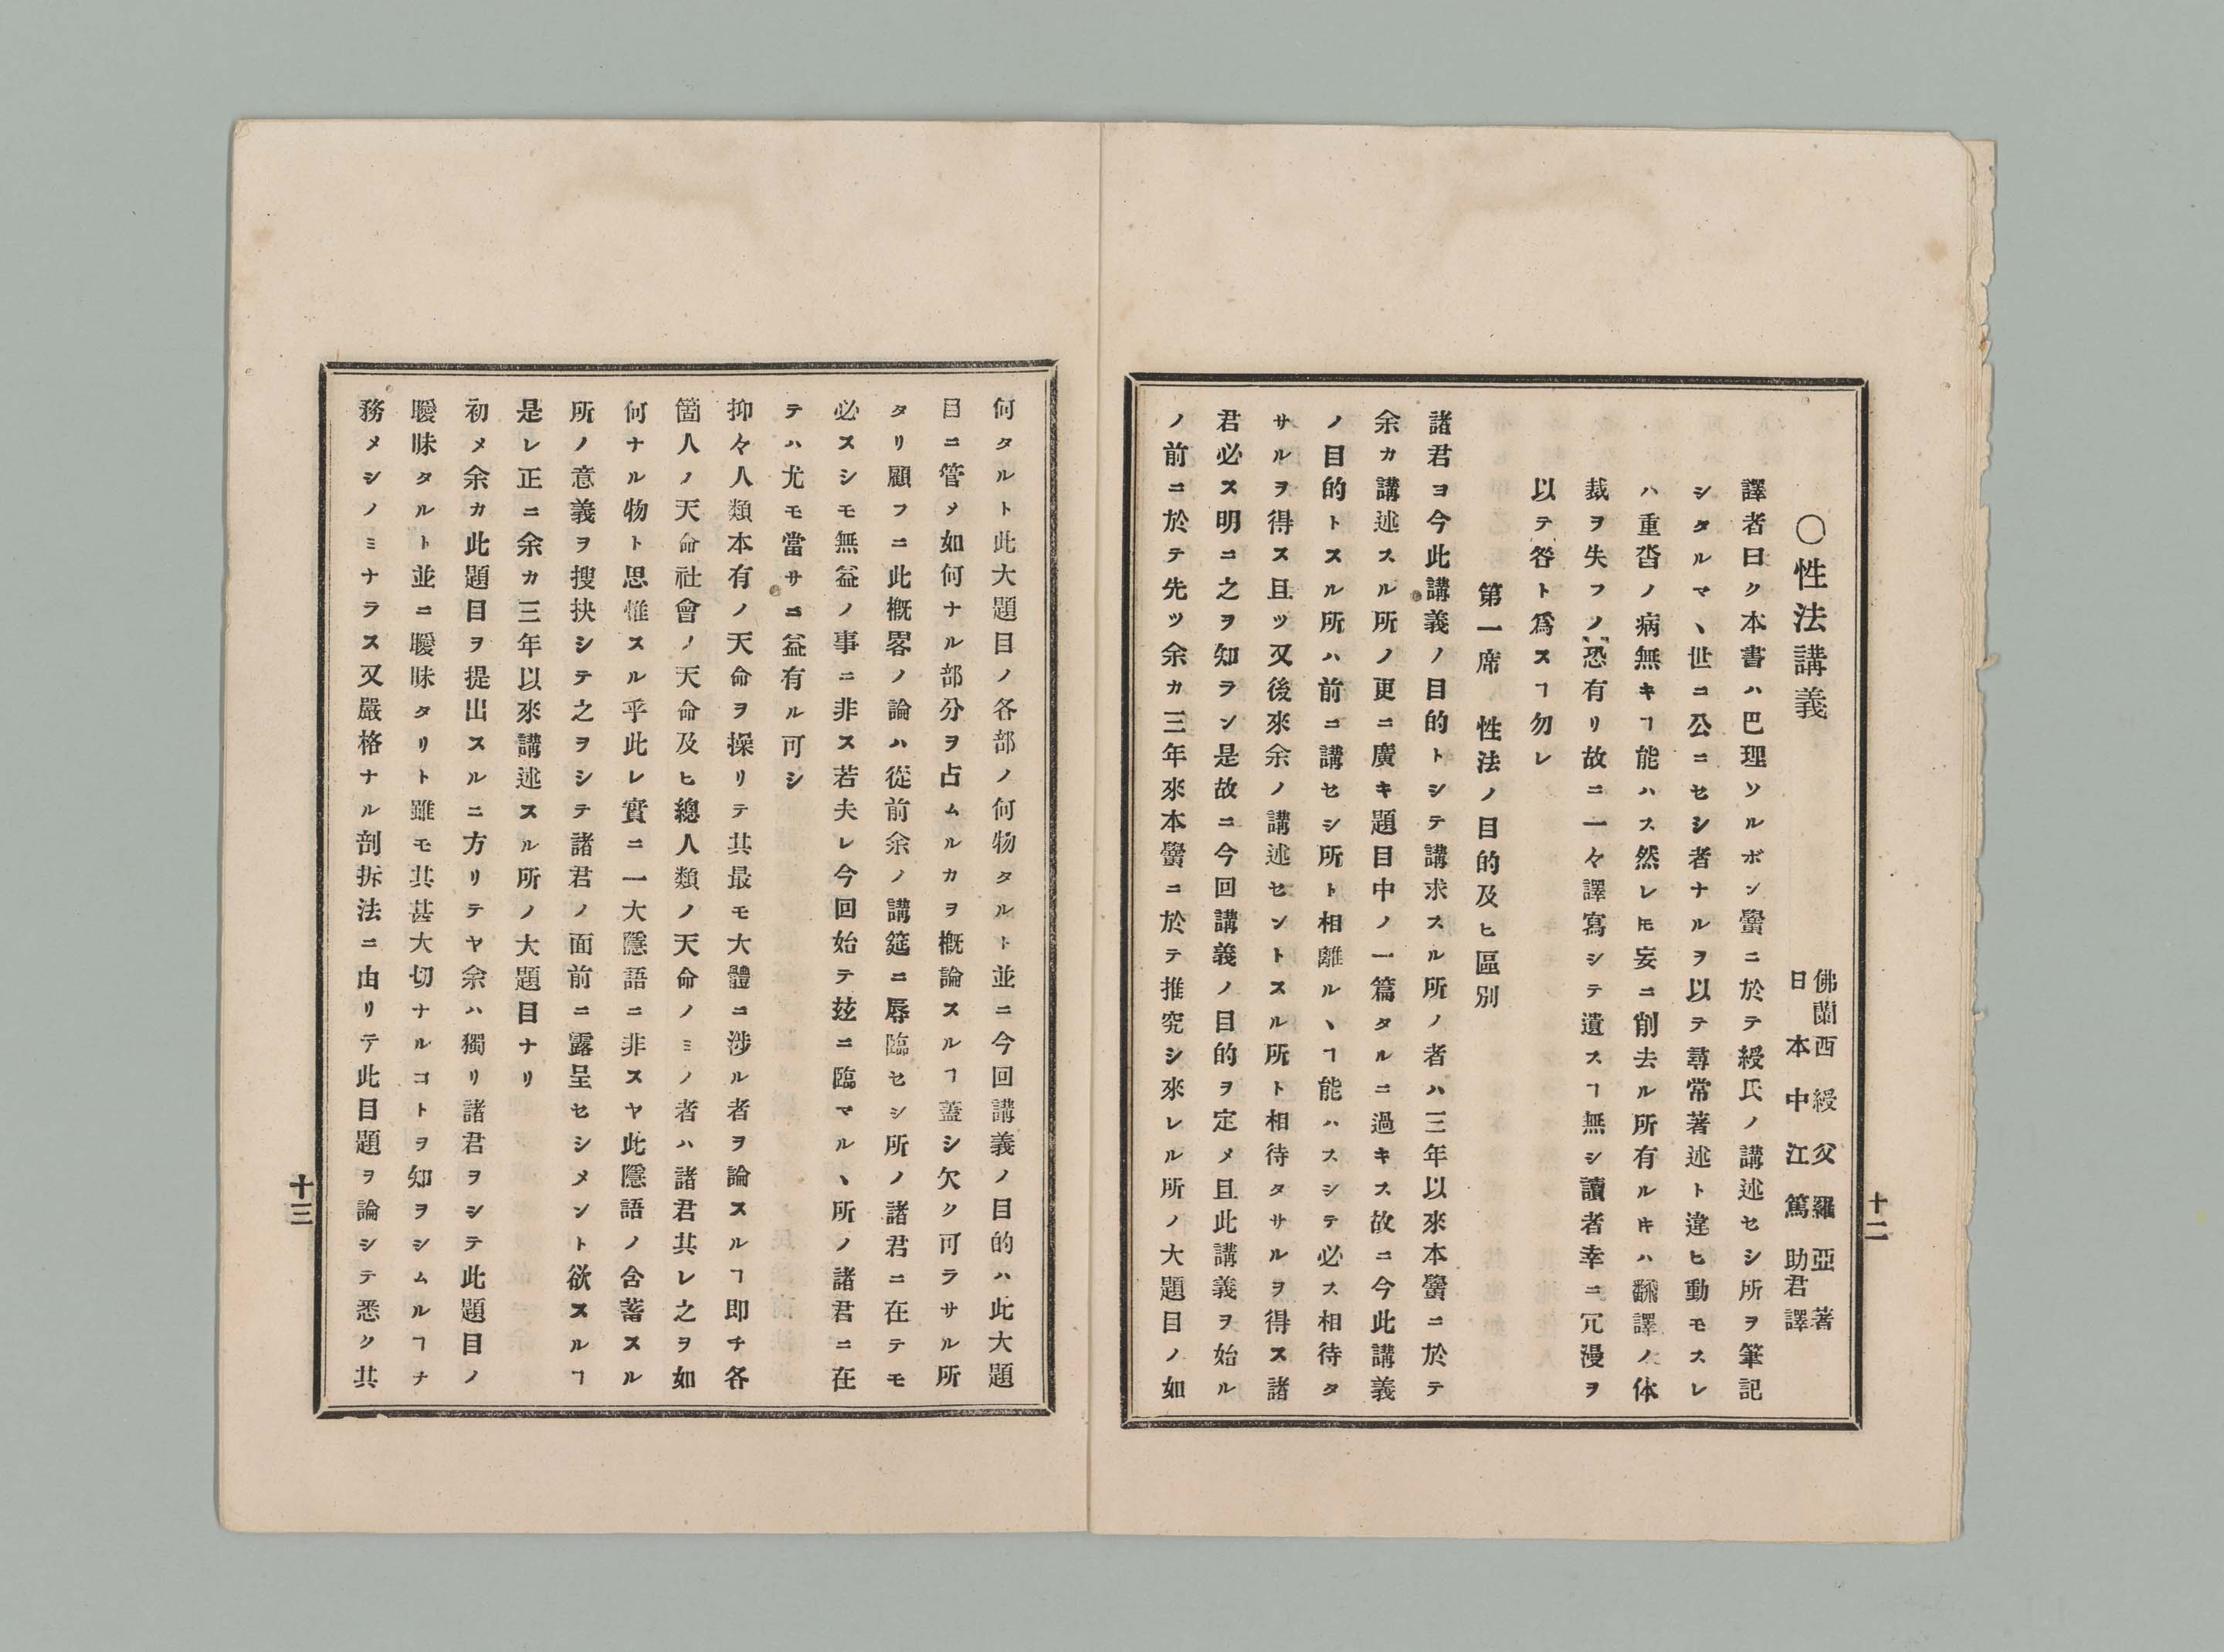 十二
〇性法講義
佛蘭西 綬父羅亞著
日本 中江篤助君譯
譯者曰ク本書ハ巴理ソルボン黌ニ於テ綬氏ノ講述セシ所ヲ筆記
シタルマヽ世ニ公ニセシ者ナルヲ以テ尋常著述ト違ヒ動モスレ
ハ重沓ノ病無キヿ能ハス然レ𪜈妄ニ削去ル所有ルキハ翻譯ノ体
裁ヲ失フノ恐有リ故ニ一々譯寫シテ遺スヿ無シ讀者幸ニ冗漫ヲ
以テ咎ト爲スヿ勿レ
第一席 性法ノ目的及ヒ區別
諸君ヨ今此講義ノ目的トシテ講求スル所ノ者ハ三年以來本黌ニ於テ
余カ講述スル所ノ更ニ廣キ題目中ノ一篇タルニ過キス故ニ今此講義
ノ目的トスル所ハ前ニ講セシ所ト相離ルヽヿ能ハスシテ必ス相待タ
サルヲ得ス且ツ又後來余ノ講述セントスル所ト相待タサルヲ得ス諸
君必ス明ニ之ヲ知ラン是故ニ今回講義ノ目的ヲ定メ且此講義ヲ始ル
ノ前ニ於テ先ツ余カ三年來本黌ニ於テ推究シ來レル所ノ大題目ノ如
何タルト此大題目ノ各部ノ何物タルト並ニ今回講義ノ目的ハ此大題
目ニ管メ如何ナル部分ヲ占ムルカヲ概論スルヿ蓋シ欠ク可ラサル所
タリ顧フニ此概畧ノ論ハ從前余ノ講筵ニ辱臨セシ所ノ諸君ニ在テモ
必スシモ無益ノ事ニ非ス若夫レ今回始テ玆ニ臨マルヽ所ノ諸君ニ在
テハ尤モ當サニ益有ル可シ
抑々人類本有ノ天命ヲ操リテ其最モ大體ニ渉ル者ヲ論スルヿ即チ各
箇人ノ天命社會ノ天命及ヒ總人類ノ天命ノミノ者ハ諸君其レ之ヲ如
何ナル物ト思惟スル乎此レ實ニ一大隱語ニ非スヤ此隱語ノ含蓄スル
所ノ意義ヲ搜抉シテ之ヲシテ諸君ノ面前ニ露呈セシメント欲スルヿ
是レ正ニ余カ三年以來講述スル所ノ大題目ナリ
初メ余カ此題目ヲ提出スルニ方リテヤ余ハ獨リ諸君ヲシテ此題目ノ
曖昧タルト並ニ曖昧タリト雖モ其甚大切ナルコトヲ知ヲシムルヿヲ
務メシノミナラス又嚴格ナル剖拆法ニ由リテ此目題ヲ論シテ悉ク其
十三